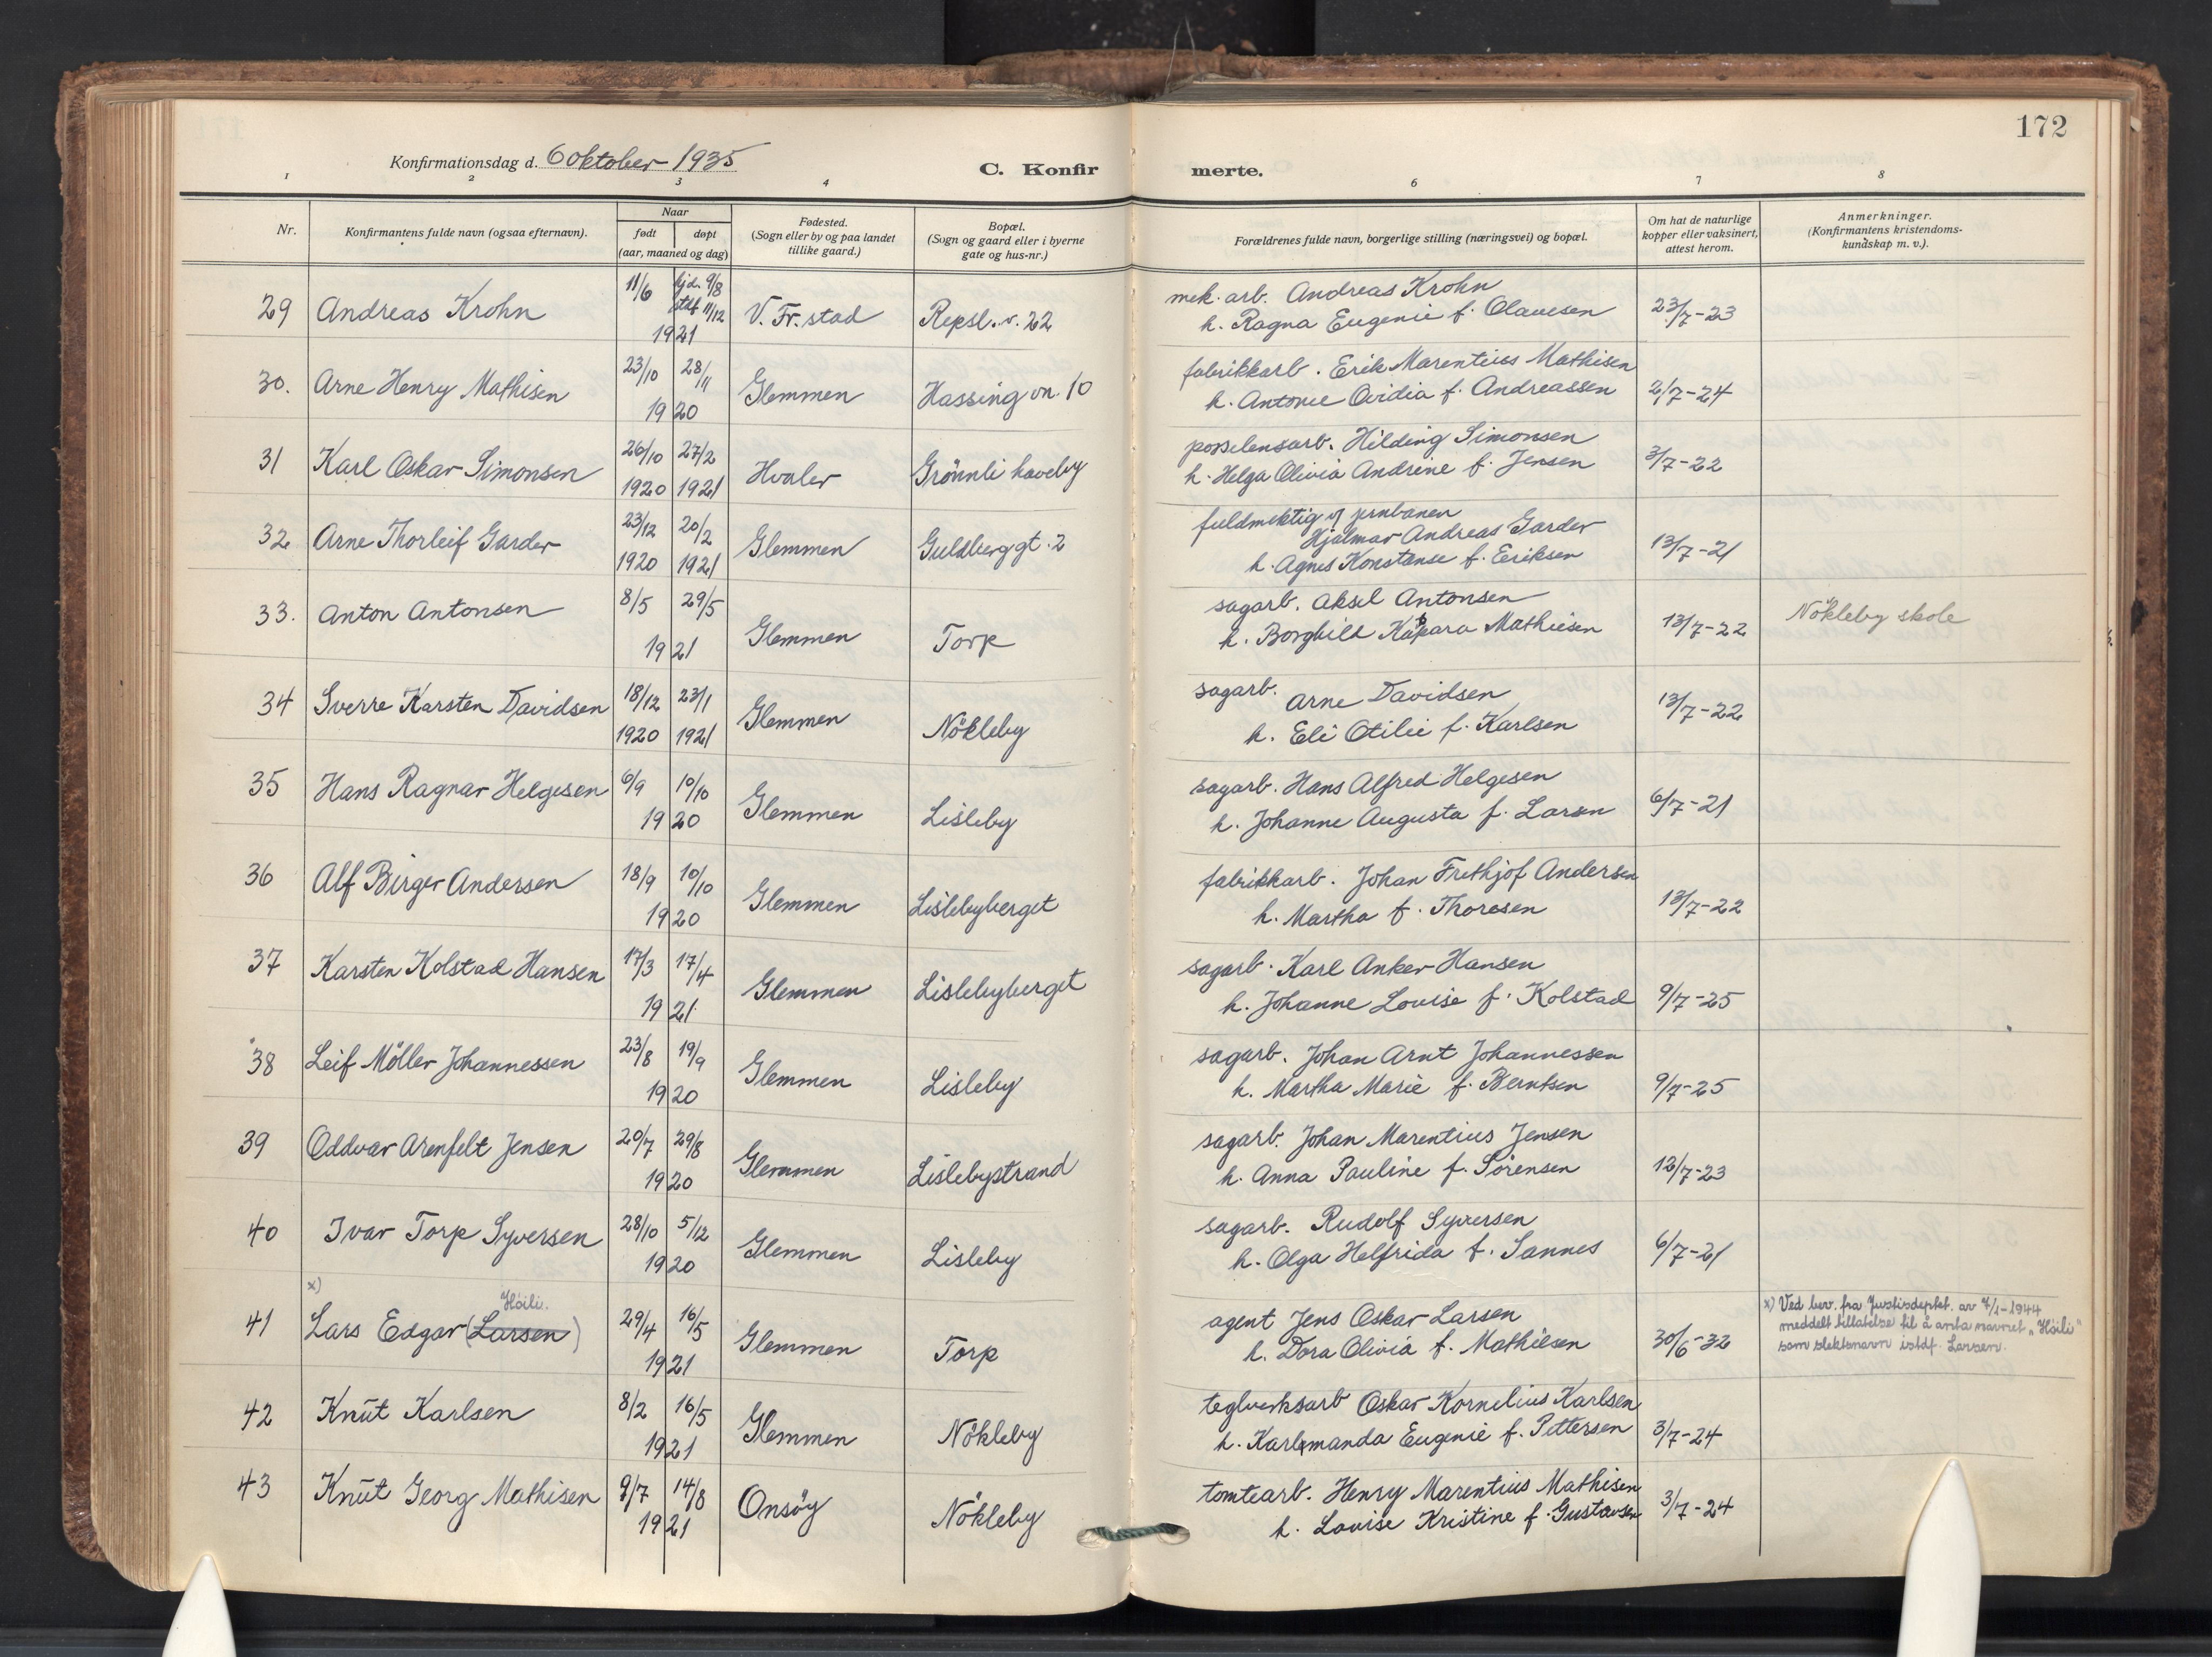 172
Konfirmationsdag d. 6 oktober 1935
C. Konfirmerte.
1 2 3 4 6 7 8
Nr.
Konfirmantens fulde navn (ogsaa efternavn).
Naar
født døpt
(aar, maaned og dag)
Fødested.
(Sogn eller by og paa landet
tillike gaard.)
Bopæl.
(Sogn og gaard eller i byerne
gate og hus-nr.)
Forældrenes fulde navn, borgerlige stilling (næringsvei) og bopæl.
Om hat de naturlige
kopper eller vaksinert,
attest herom.
Anmerkninger.
(Konfirmantens kristendoms-
kundskap m. v.).
29 Andreas Krohn 11/6 hjd. 9/8 stdf 11/12 1921 V. Fr.stad Repsl.v. 22
mek. arb. Andreas Krohn
h. Ragna Eugenie f. Olavesen 23/7-23
30. Arne Henry Mathisen 23/10 28/11 1920 Glemmen Hassing vn. 10
fabrikkarb. Erik Marentius Mathisen
h. Antonie Ovidia f. Andreassen 2/7-24
31 Karl Oskar Simonsen 26/10 1920 27/2 1921 Hvaler Grönnli haveby
porselensarb. Hilding Simonsen
h. Helga Olivia Andrine f. Jensen 3/7-22
32 Arne Thorleif Garder 23/12 1920 20/2 1921 Glemmen Guldberggt. 2
fuldmektig v jernbanen
Hjalmar Andreas Garder
h. Agnes Konstanse f. Eriksen 13/7-21
33. Anton Antonsen 8/5 29/5 1921 Glemmen Torp
sagarb. Aksel Antonsen
h. Borghild Mathiesen 13/7-22 Nökleby skole
34 Sverre Karsten Davidsen 18/12 1920 23/1 1921 Glemmen Nökleby
sagarb. Arne Davidsen
h. Eli Otilie f. Karlsen 13/7-22
35 Hans Ragnar Helgesen 6/9 10/10 1920 Glemmen Lisleby
sagarb. Hans Alfred Helgesen
h. Johanne Augusta f. Larsen 6/7-21
36 Alf Birger Andersen 18/9 10/10 1920 Glemmen Lislebyberget
fabrikkarb. Johan Frithjof Andersen
h. Martha f. Thoresen 13/7-22
37 Karsten Kolstad Hansen 17/3 17/4 1921 Glemmen Lislebyberget
sagarb. Karl Anker Hansen
h. Johanne Lovise f. Kolstad 9/7-25
38 Leif Möller Johannessen 23/8 19/9 1920 Glemmen Lisleby
sagarb. Johan Arnt Johannessen
h. Martha Marie f. Berntsen 9/7-25
39 Oddvar Arenfelt Jensen 20/7 29/8 1920 Glemmen Lislebystrand
sagarb. Johan Marentius Jensen
h. Anna Pauline f. Sörensen 12/7-23
40 Ivar Torp Syversen 28/10 5/12 1920 Glemmen Lisleby
sagarb. Rudolf Syversen
h. Olga Helfrida f. Sannes 6/7-21
x) Höili.
41 Lars Edgar (Larsen) 29/4 16/5 1921 Glemmen Torp
agent Jens Oskar Larsen
h. Dora Olivia f. Mathiesen 30/6-32
x) Ved bev. fra Justisdeptet. av 7/1-1944
meddelt tillatelse til å anta navnet "Höili"
som slektsnavn istdf. Larsen.
42 Knut Karlsen 8/2 16/5 1921 Glemmen Nökleby
teglverksarb Oskar Kornelius Karlsen
h. Karlmanda Eugenie f. Pettersen 3/7-24
43 Knut Georg Mathisen 9/7 14/8 1921 Onsöy Nökleby
tomtearb. Henry Marentius Mathisen
h. Lovise Kristine f. Gustavsen 3/7-24